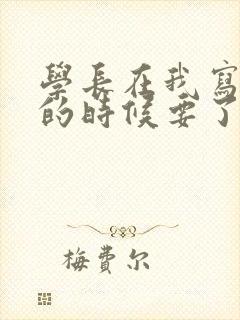 學長在我寫
的時候要了
梅費尔